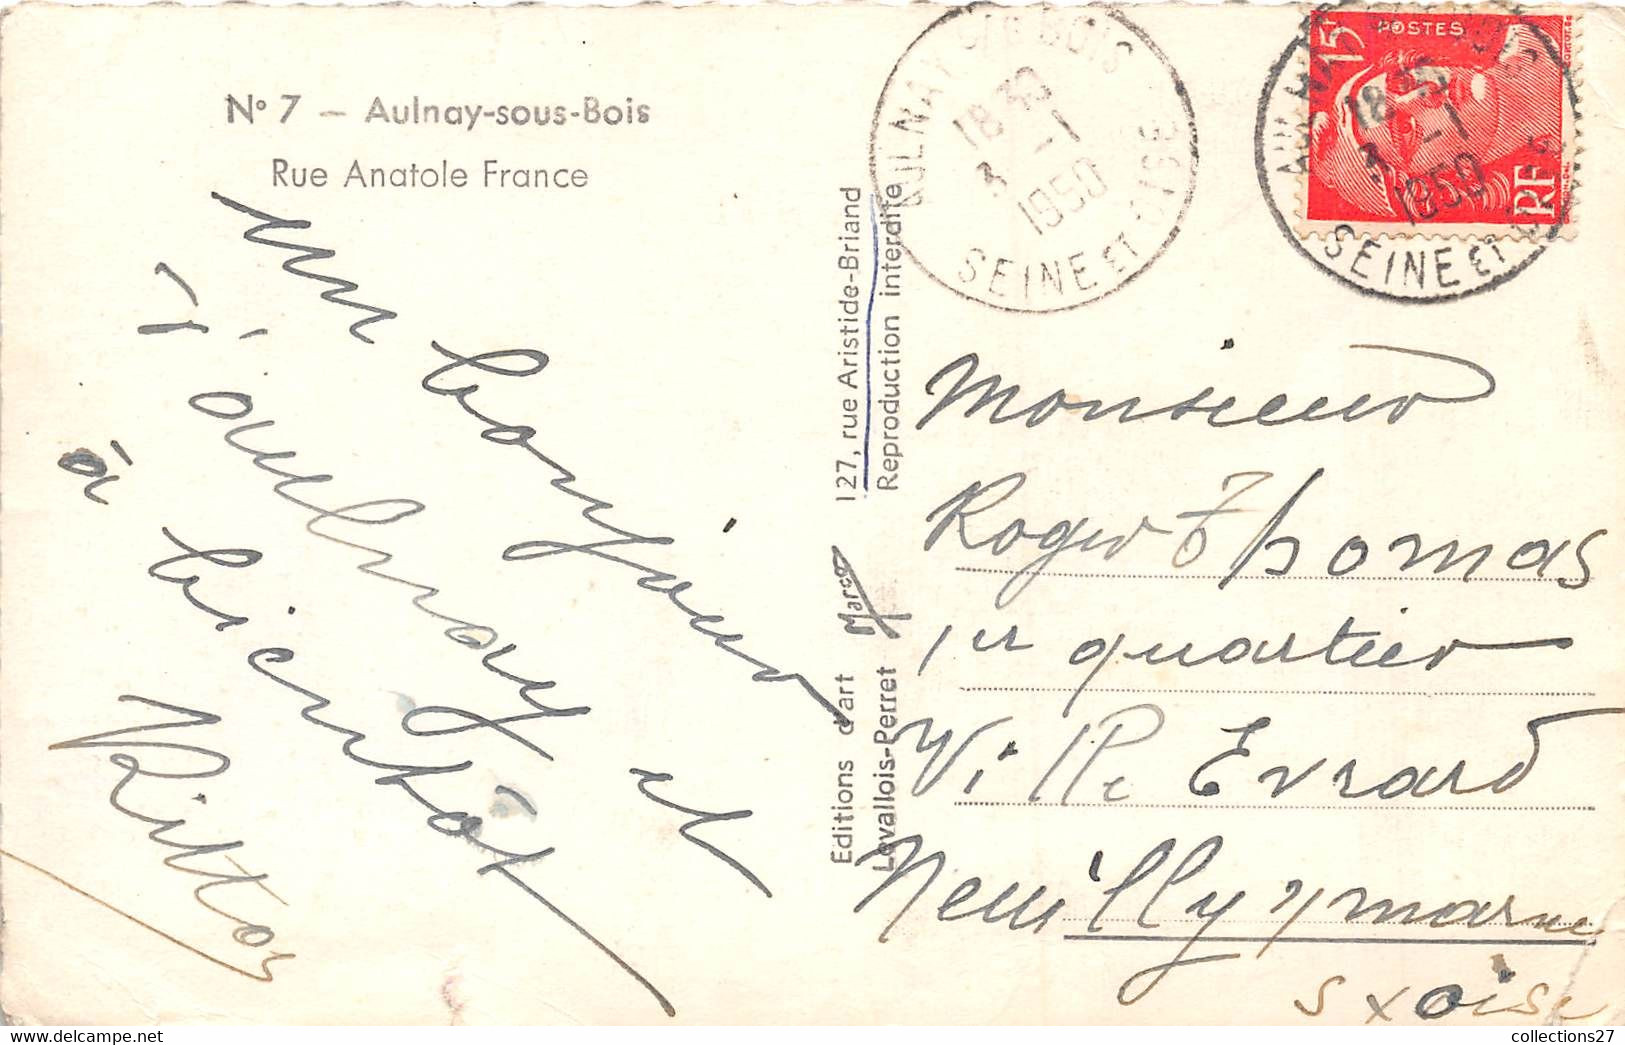 N° 7 — Aulnay-sous-Bois
Rue Anatole France
un bonjour
d'aulnay et
à bientôt
Editions d'art Marco 127, rue Aristide-Briand
Levallois-Perret Reproduction interdite
AULNAY S/S BOIS
18 30
3 -1
1950
SEINE ET OISE
15F POSTES
RF
AULNAY S/S BOIS
18 30
3 -1
1950
SEINE ET OISE
Monsieur
Roger Thomas
1er quartier
Ville Evrard
Neuilly s/ marne
S x oise
collections27